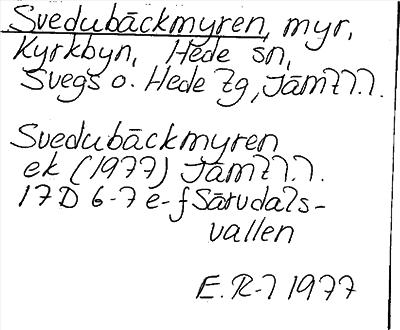 Svedubäckmyren, myr,
Kyrkbyn, Hede sn,
Svegs o. Hede tg, Jämtl.l.
Svedubäckmyren
ek (1977) Jämtl.l.
17D 6-7 e-f Särvdals-
vallen
E.R-l 1977